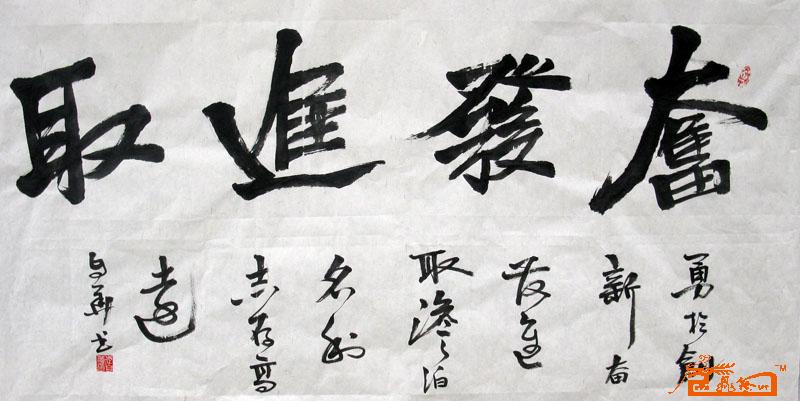 奮發進取
勇於創
新奮
发進
取澹泊
名利
志存高
遠